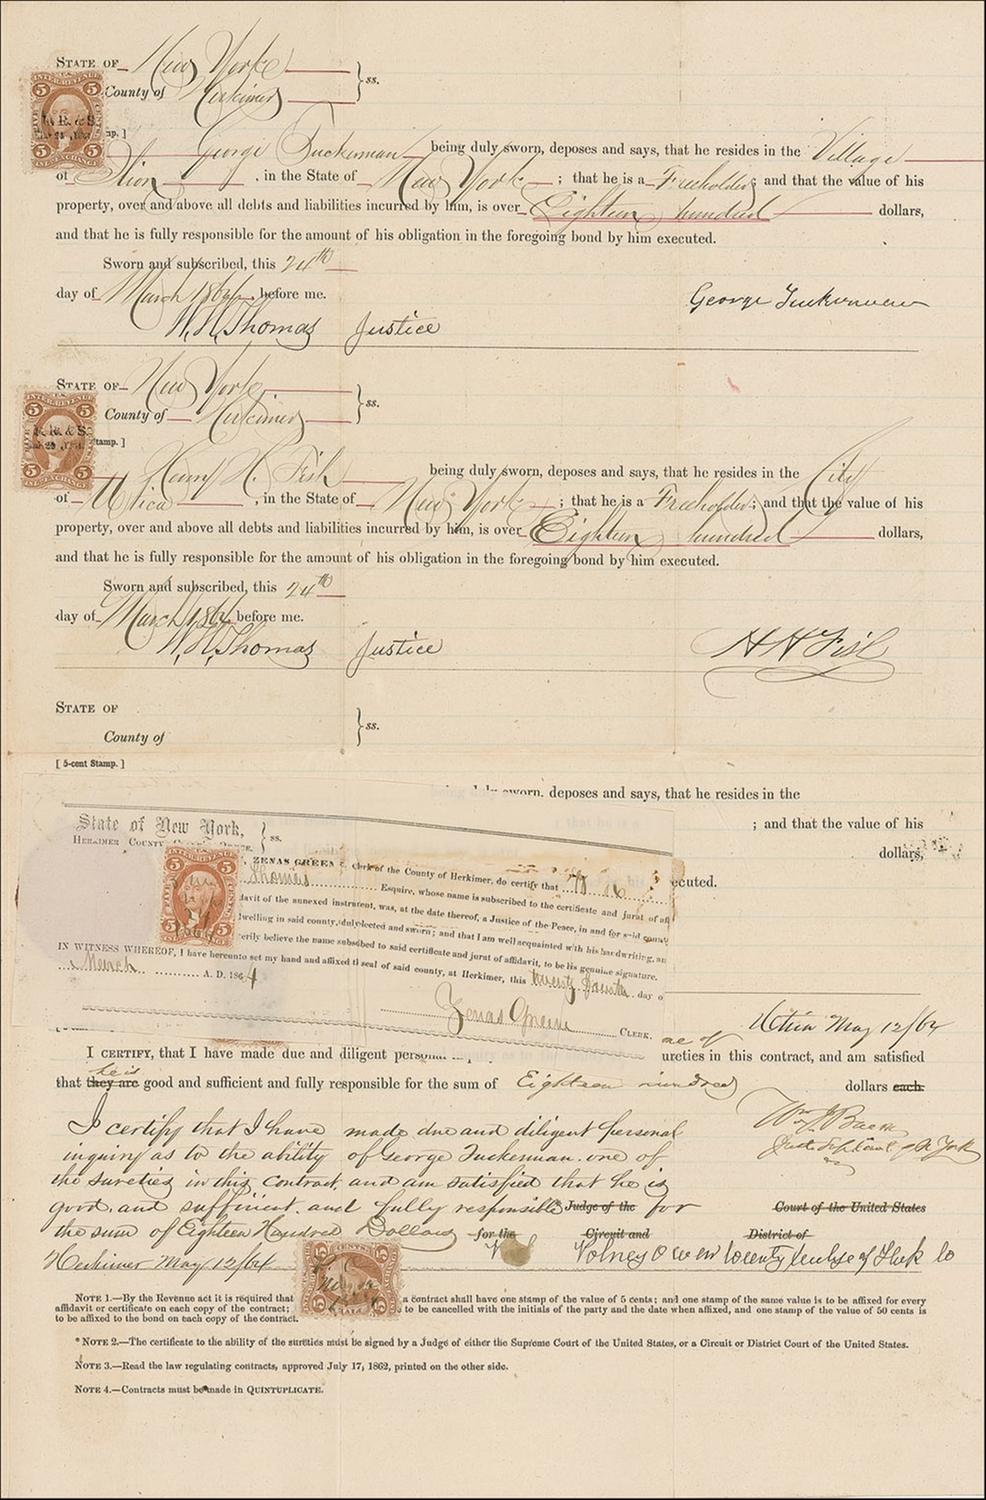 STATE OF New York
County of Herkimer } ss.
George Tuckerman being duly sworn, deposes and says, that he resides in the Village
of Ilion, in the State of New York; that he is a Freeholder; and that the value of his
property, over and above all debts and liabilities incurred by him, is over Eighteen hundred dollars,
and that he is fully responsible for the amount of his obligation in the foregoing bond by him executed.
Sworn and subscribed, this 24th
day of March 1864, before me.
George Tuckerman
W. H. Thomas Justice
STATE OF New York
County of Herkimer } ss.
stamp. ]
H. Fish being duly sworn, deposes and says, that he resides in the City
of Utica, in the State of New York; that he is a Freeholder; and that the value of his
property, over and above all debts and liabilities incurred by him, is over Eighteen hundred dollars,
and that he is fully responsible for the amount of his obligation in the foregoing bond by him executed.
Sworn and subscribed, this 24th
day of March 1864 before me.
W. H. Thomas Justice
H H Fish
STATE OF
County of } ss.
[ 5-cent Stamp. ]
sworn, deposes and says, that he resides in the
; and that the value of his
dollars,
State of New York, } ss.
HERKIMER COUNTY
ZENAS GREEN Clerk of the County of Herkimer, do certify that W H
Thomas Esquire, whose name is subscribed to the certificate and jurat of
davit of the annexed instrument, was, at the date thereof, a Justice of the Peace, in and for said county
dwelling in said county, duly elected and sworn; and that I am well acquainted with his handwriting, an
verily believe the name subscribed to said certificate and jurat of affidavit, to be his genuine signature.
IN WITNESS WHEREOF, I have hereunto set my hand and affixed seal of said county, at Herkimer, this twenty fourth day o
March A. D. 1864
Zenas Green CLERK.
ecuted.
Utica May 12/64
I CERTIFY, that I have made due and diligent personal
ureties in this contract, and am satisfied
he is
that they are good and sufficient and fully responsible for the sum of Eighteen hundred dollars each.
I certify that I have made due and diligent personal
inquiry as to the ability of George Tuckerman one of
the sureties in this contract, and am satisfied that he is
good and sufficient and fully responsible Judge of the for Court of the United States
the sum of Eighteen Hundred Dollars for the Circuit and District of
Herkimer May 12/64
Volney Owen County Judge of Herk Co
NOTE 1.—By the Revenue act it is required that a contract shall have one stamp of the value of 5 cents; and one stamp of the same value is to be affixed for every
affidavit or certificate on each copy of the contract; to be cancelled with the initials of the party and the date when affixed, and one stamp of the value of 50 cents is
to be affixed to the bond on each copy of the contract.
*NOTE 2.—The certificate to the ability of the sureties must be signed by a Judge of either the Supreme Court of the United States, or a Circuit or District Court of the United States.
NOTE 3.—Read the law regulating contracts, approved July 17, 1862, printed on the other side.
NOTE 4.—Contracts must be made in QUINTUPLICATE.